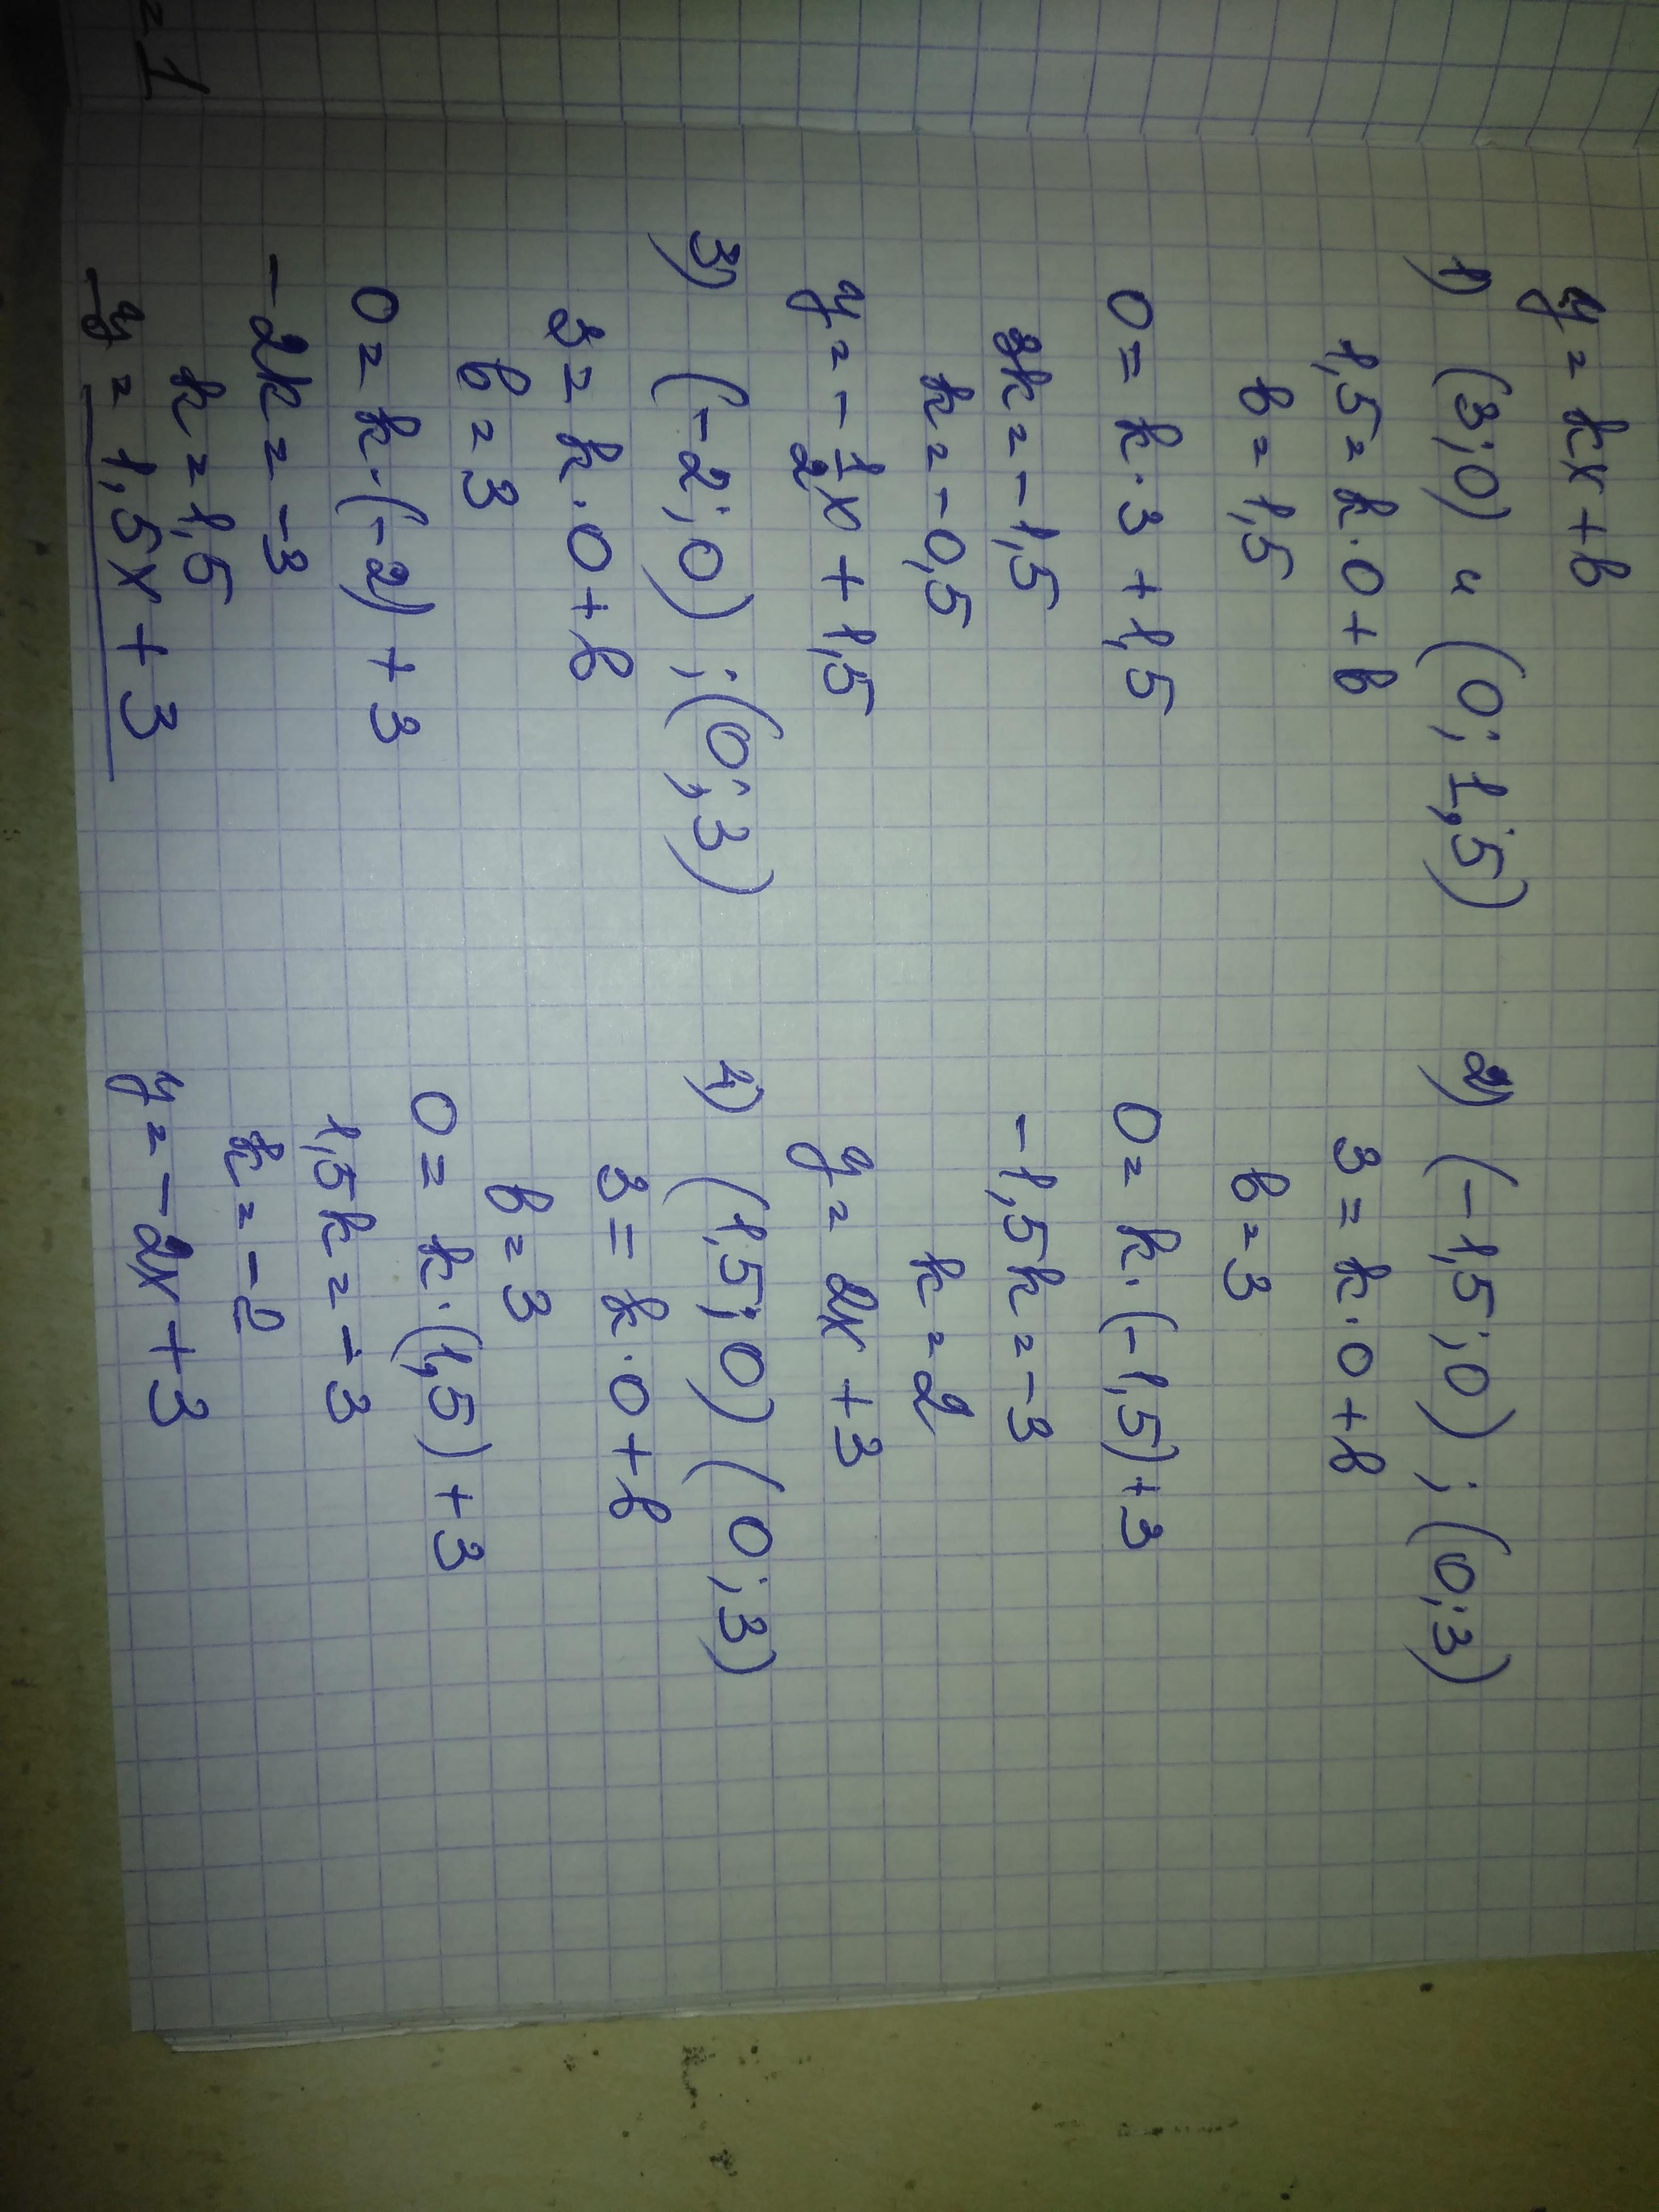 y = kx + b
1) (3; 0) и (0; 1,5)
1,5 = k · 0 + b
b = 1,5
0 = k · 3 + 1,5
3k = - 1,5
k = - 0,5
y = - 1/2 x + 1,5
2) (-1,5; 0) ; (0; 3)
3 = k · 0 + b
b = 3
0 = k · (-1,5) + 3
- 1,5k = - 3
k = 2
y = 2x + 3
3) (-2; 0) ; (0; 3)
3 = k · 0 + b
b = 3
0 = k · (-2) + 3
-2k = -3
k = 1,5
y = 1,5x + 3
4) (1,5; 0) (0; 3)
3 = k · 0 + b
b = 3
0 = k · (1,5) + 3
1,5k = - 3
k = - 2
y = - 2x + 3
= 1